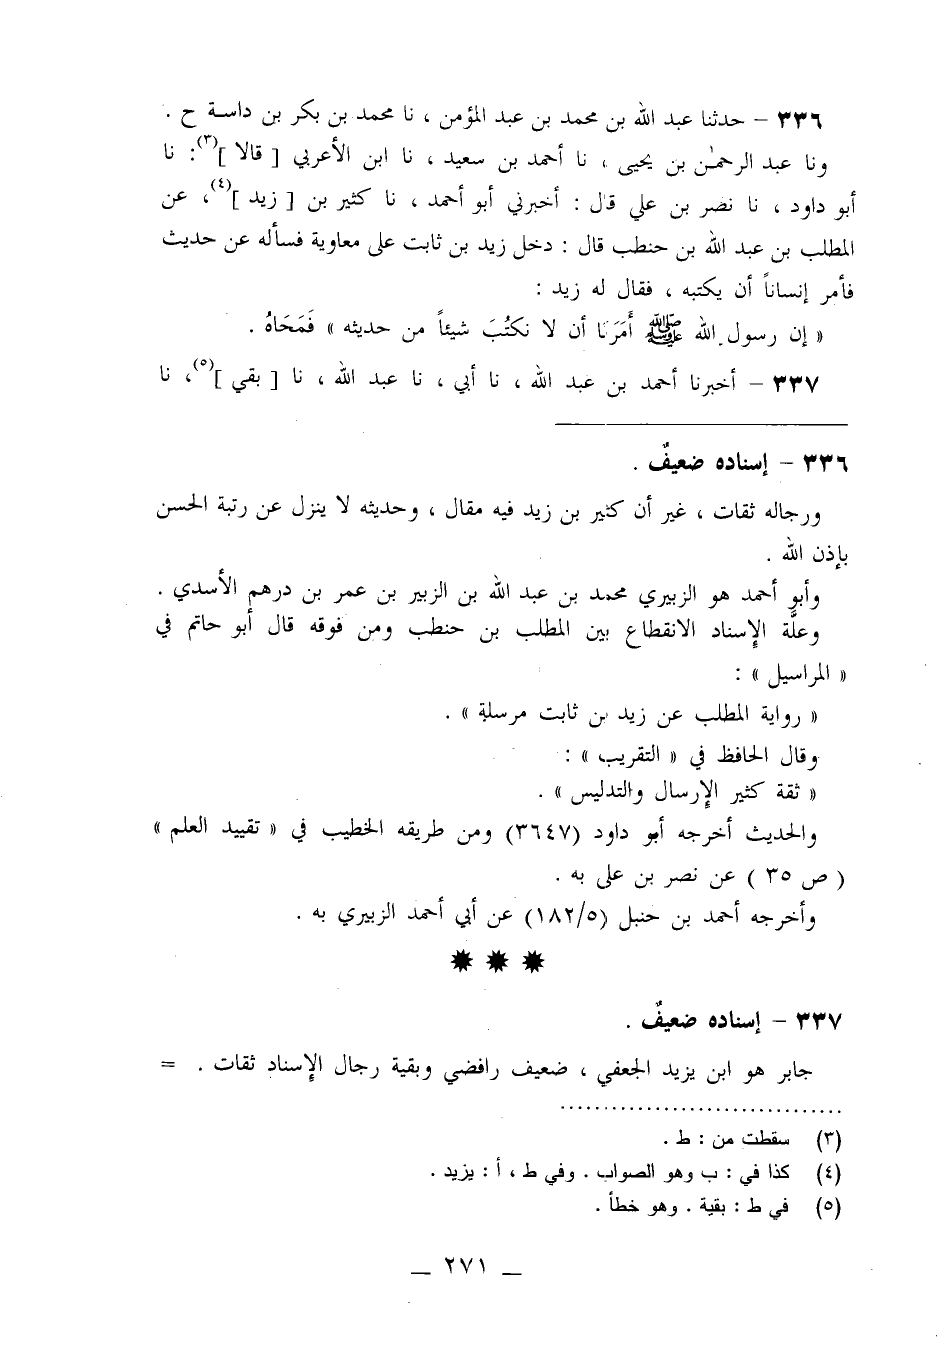 ٣٣٦ – حدثنا عبد الله بن محمد بن عبد المؤمن ، نا محمد بن بكر بن داسة ح .
ونا عبد الرحمٰن بن يحيى ، نا أحمد بن سعيد ، نا ابن الأعربي [ قالا ](٣): نا
أبو داود ، نا نصر بن علي قال : أخبرني أبو أحمد ، نا كثير بن [ زيد ](٤)، عن
المطلب بن عبد الله بن حنطب قال : دخل زيد بن ثابت على معاوية فسأله عن حديث
فأمر إنساناً أن يكتبه ، فقال له زيد :
« إن رسول الله ﷺ أَمَرَنا أن لا نكتُبَ شيئاً من حديثه » فَمَحَاهُ .
٣٣٧ – أخبرنا أحمد بن عبد الله ، نا أبي ، نا عبد الله ، نا [ بقي ](٥)، نا
٣٣٦ – إسناده ضعيفٌ .
ورجاله ثقات ، غير أن كثير بن زيد فيه مقال ، وحديثه لا ينزل عن رتبة الحسن
بإذن الله .
وأبو أحمد هو الزبيري محمد بن عبد الله بن الزبير بن عمر بن درهم الأسدي .
وعلَّة الإسناد الانقطاع بين المطلب بن حنطب ومن فوقه قال أبو حاتم في
« المراسيل » :
« رواية المطلب عن زيد بن ثابت مرسلة » .
وقال الحافظ في « التقريب » :
« ثقة كثير الإرسال والتدليس » .
والحديث أخرجه أبو داود (٣٦٤٧) ومن طريقه الخطيب في « تقييد العلم »
( ص ٣٥ ) عن نصر بن على به .
وأخرجه أحمد بن حنبل (١٨٢/٥) عن أبي أحمد الزبيري به .
✸ ✸ ✸
٣٣٧ – إسناده ضعيفٌ .
جابر هو ابن يزيد الجعفي ، ضعيف رافضي وبقية رجال الإسناد ثقات . =
(٣) سقطت من : ط .
(٤) كذا في : ب وهو الصواب . وفي ط ، أ : يزيد .
(٥) في ط : بقية . وهو خطأ .
— ٢٧١ —